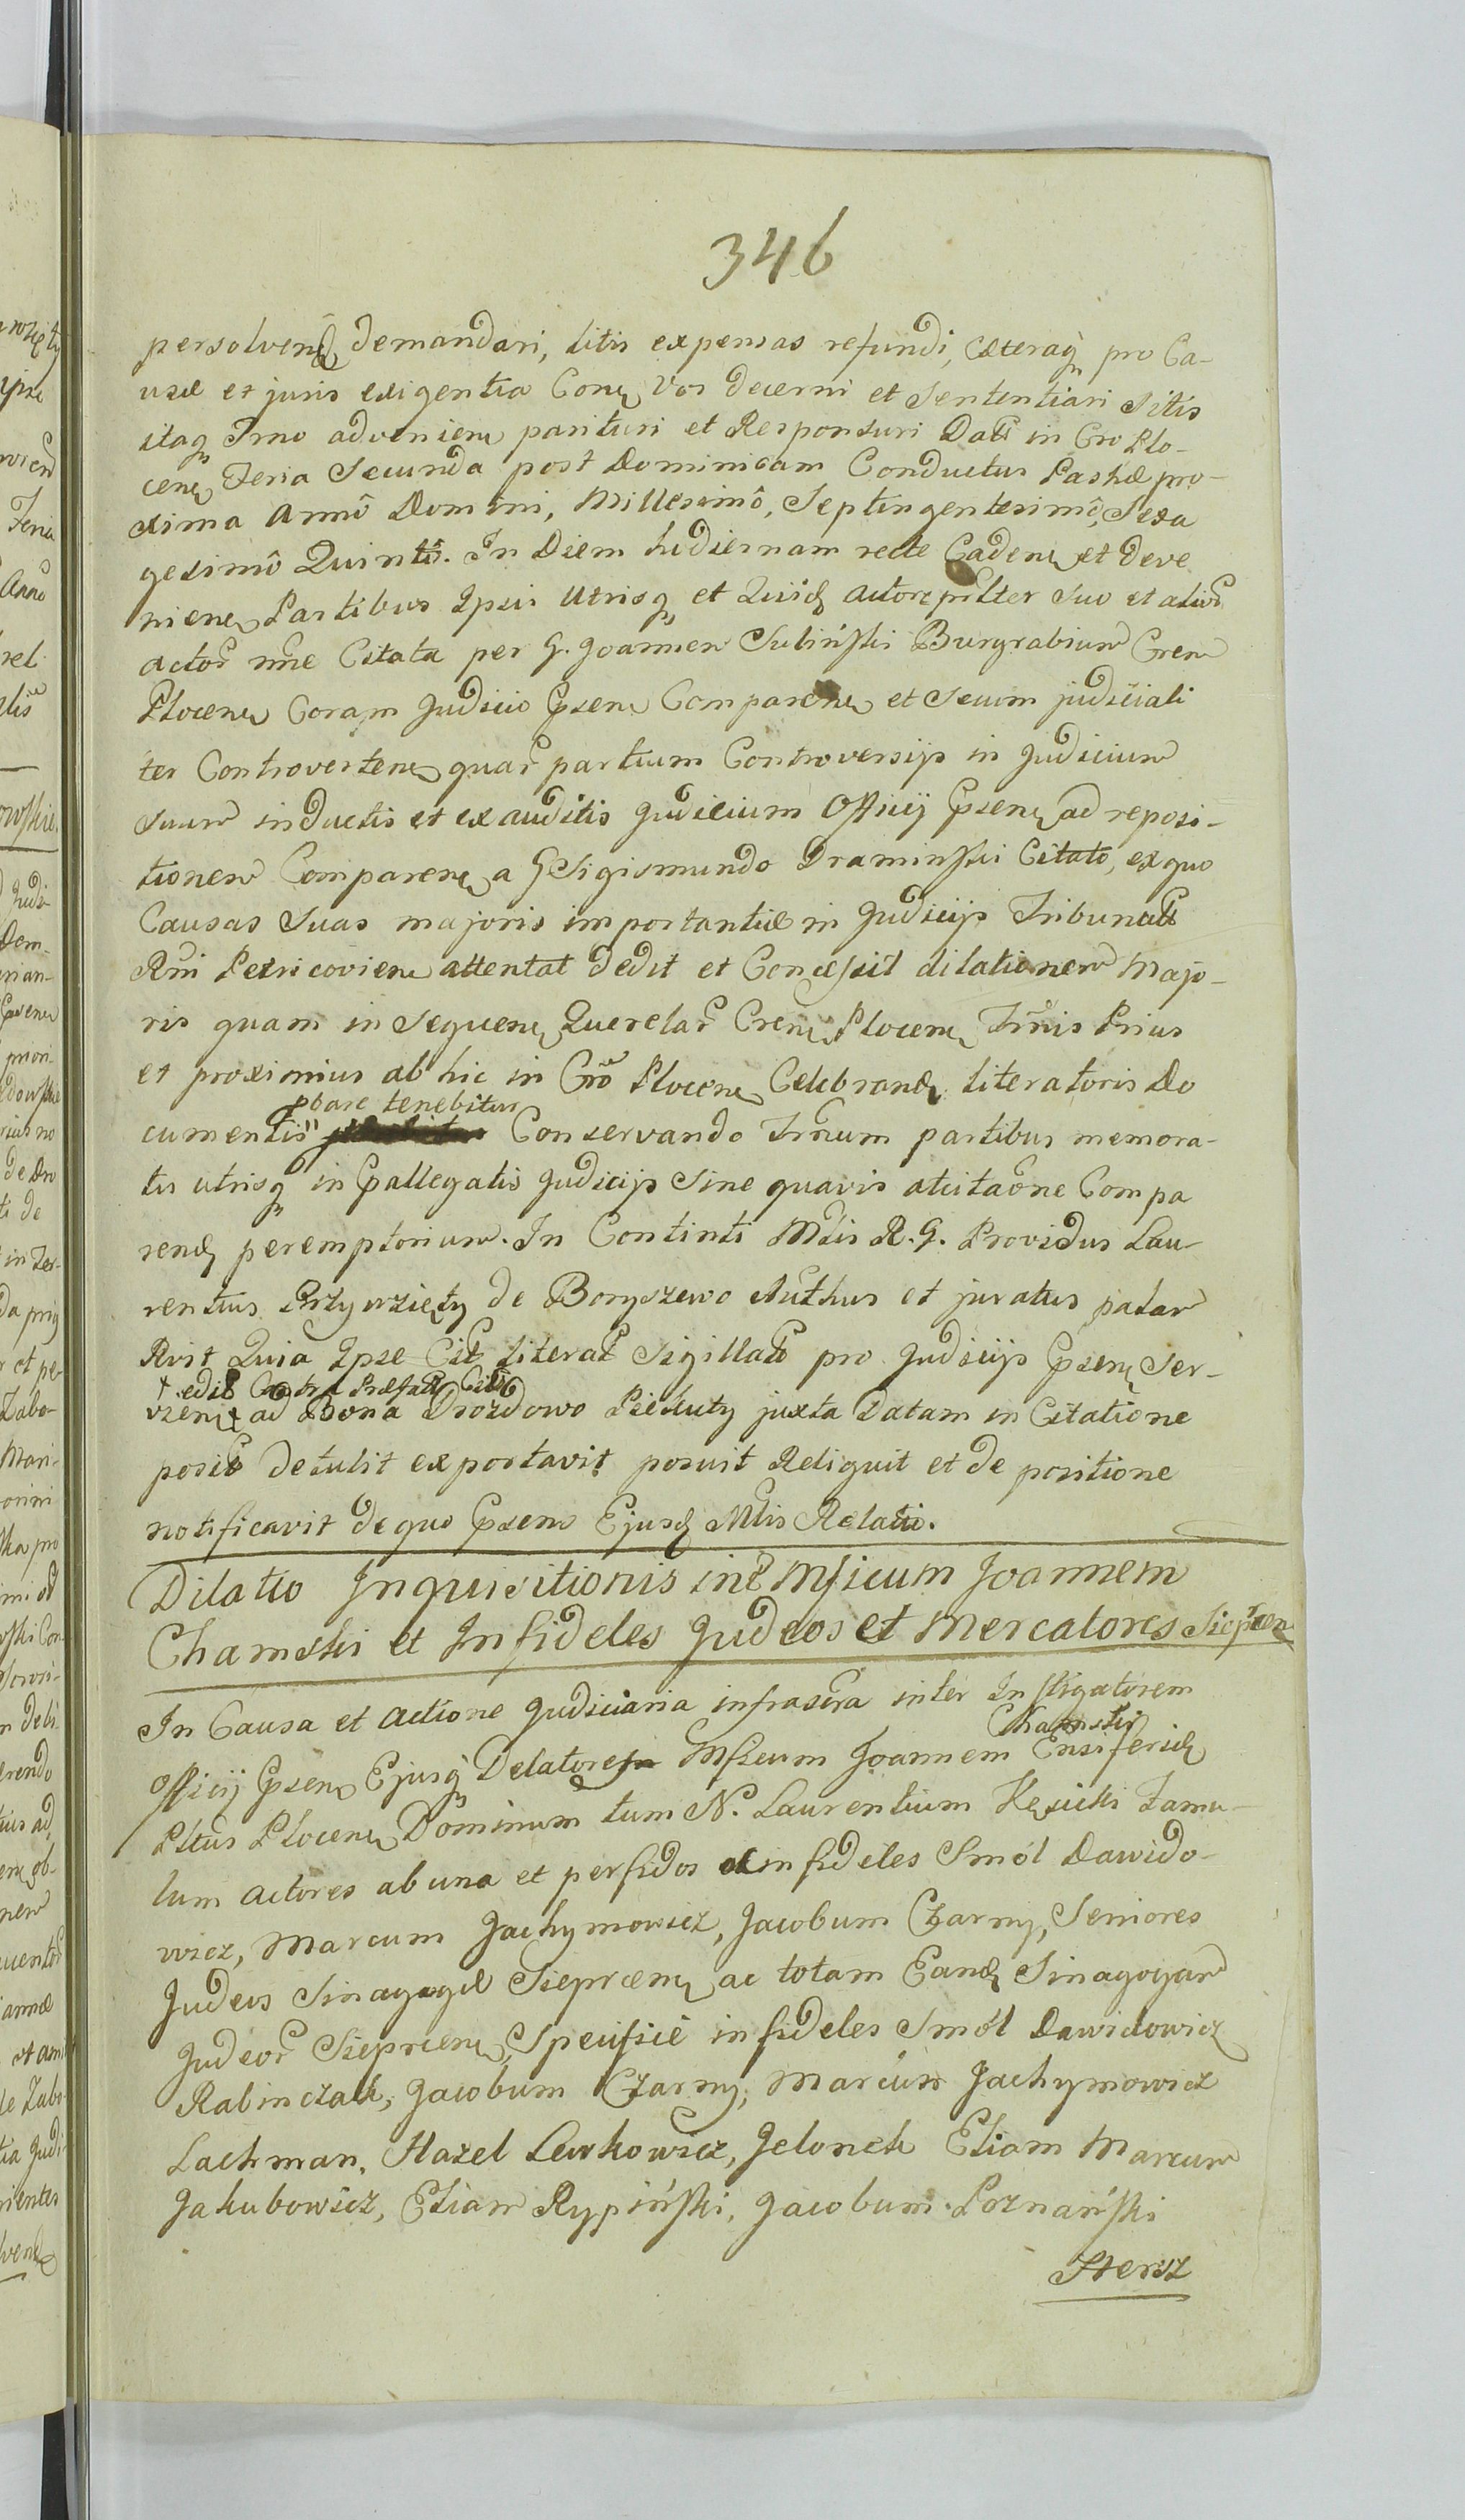 346
persolvend demandari, litis expensas refundi, cæteraq pro Ca-
usæ et juris exigentia Conq Vos decerni et Sententiari Sitis
itaq Trno adveniene parituri et Responsuri Datt in Cro Plo-
cenq Feria Secunda post Dominicam Conductus Paschæ pro-
xima Annô Domini, Millesimô, Septingentesimô, Sexa
gesimô Quintô. In Diem hodiernam recte Cadenq et deve
nienq Partibus Ipsis Utrisq et Quid actore psltter suo et alior
actor nne Citata per G. Joannem Suliński Burgrabium Cren
Plocenq Coram Judicio Psenq Comparenq et Secum judiciali
ter Controvertenq quar partium Controversijs in Judicium
Suum inductis et exauditis Judicium Officij Psenq ad reposi-
tionem Comparenq a G Sigismundo Dramiński Citato, ex quo
Causas Suas majoris importantiæ in Judicijs Tribunatt
Rni Petricovienq attentat dedit et Concessit dilationem Majo-
ris quam in Sequenq Querelar Crenq Plocenq Trnis Prius
et proximius ab hic in Crô Plocenq Celebrand literatoris Do
pbare tenebitur
cumentis Conservando Trnum partibus memora-
tis utrisq in Pallegatis Judicijs Sine quavis atcitaone Compa
rend peremptorium. In Continti Mtis R. G. Providus Lau-
rentius Przywzięty de Boryszewo Authus et juratus palam
Rvit Quia Ipse Citt literatt Sigillatt pro Judicijs Psenq Ser-
† edit Contra Præfatt Citt
vzenq † ad Bona Drozdowo Piekuty juxta Datam in Citatione
posit detulit exportavit posuit Reliquit et de positione
notificavit de quo Psens Ejusd Mtis Relatio.
Dilatio Inquisitionis int Mficum Joannem
Chamski et Infideles Judeos et Mercatores Siepren
In Causa et actione Judiciaria infrascra inter Instigatorem
Chamski
Officij Psenq Ejusq Delatorem Mficum Joannem Ensiferid
Pltus Plocenq Dominum tum N. Laurentium Kęsicki Famu-
lum actores ab una et perfidos infideles Smól Dawido-
wicz, Marcum Jachymowicz, Jacobum Czarny, Seniores
Judeos Sinagogæ Sieprcenq ac totam Eand Sinagogam
Judeor Sieprcenq, Specifice infideles Smól Dawidowicz
Rabinczak, Jacobum Czarny, Marcum Jachymowicz
Lachman, Hazel Lewkowicz, Jelonek Eliam Marcum
Jakubowicz, Eliam Rypiński, Jacobum Poznański
Hersz